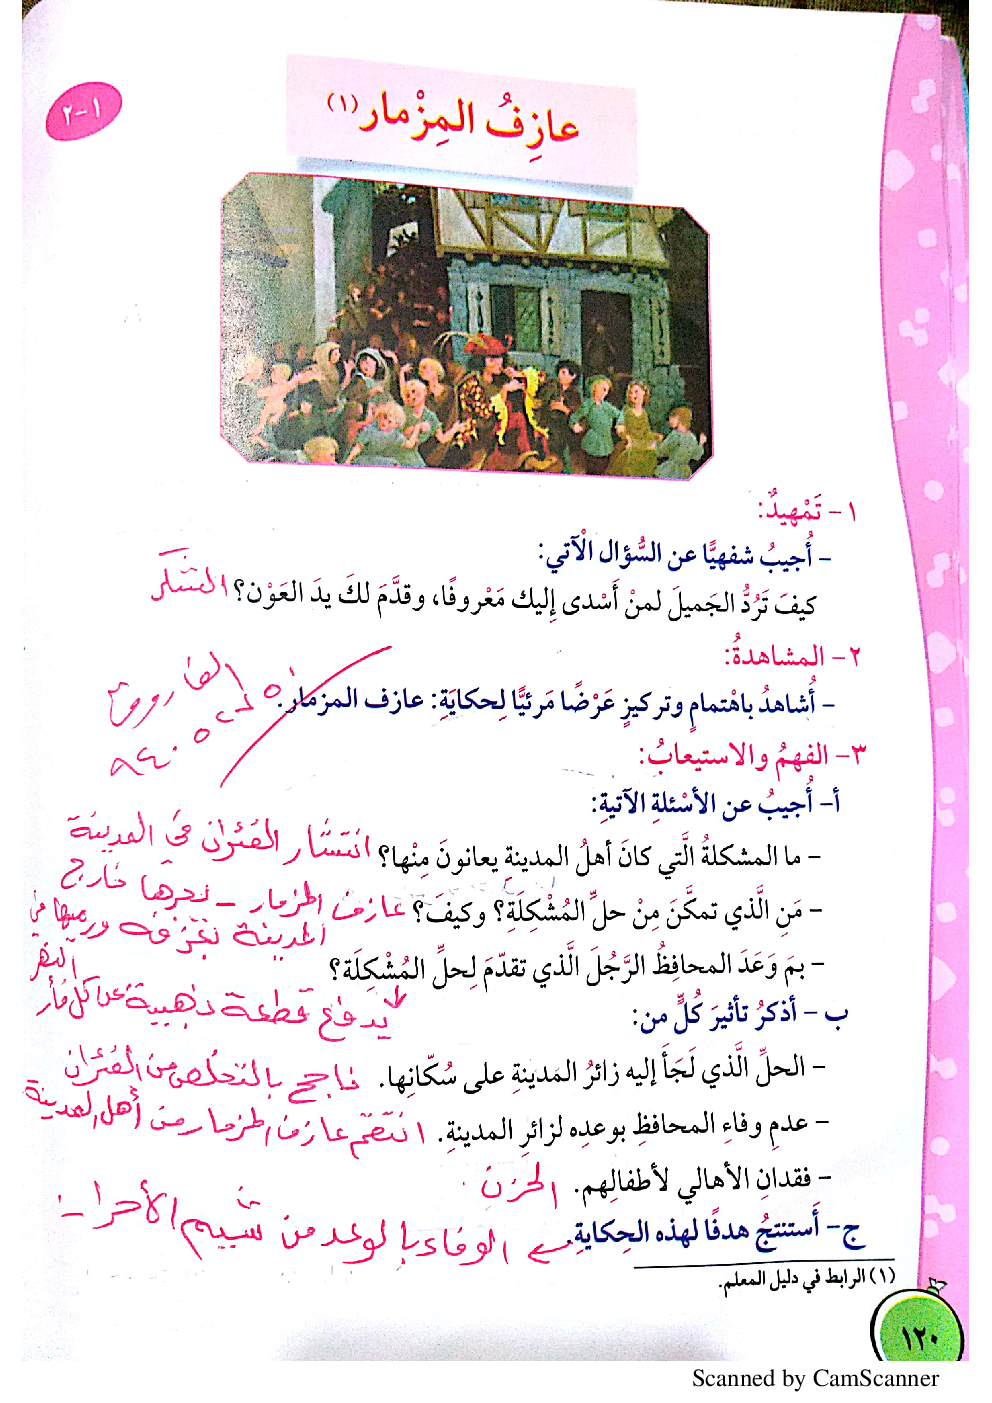 ١-٢
عازِفُ المِزْمار (١)
١- تَمْهيدٌ:
- أُجيبُ شفهيًّا عن السُّؤال الْآتي:
كيفَ تَرُدُّ الجَميلَ لمنْ أَسْدى إليك مَعْروفًا، وقدَّمَ لكَ يدَ العَوْن؟ الشكر
٢- المشاهدةُ:
- أُشاهدُ باهْتمامٍ وتركيزٍ عَرْضًا مَرئيًّا لِحكايَةِ: عازف المزمار.
٣- الفهمُ والاستيعابُ:
أ- أُجيبُ عن الأسْئلةِ الآتيةِ:
- ما المشكلةُ الَّتي كانَ أهلُ المدينةِ يعانونَ مِنْها؟ انتشار الفئران في المدينة
- مَن الَّذي تمكَّنَ مِنْ حلِّ المُشْكِلَةِ؟ وكيفَ؟ عازف المزمار - بحرها خارج
المدينة بعزفه ورميها في
النهر
- بمَ وَعَدَ المحافِظُ الرَّجُلَ الَّذي تقدّمَ لِحلِّ المُشْكِلَة؟
يدفع قطعة ذهبية عن كل فأر
ب - أذكرُ تأثيرَ كُلٍّ من:
- الحلِّ الَّذي لَجَأَ إليه زائرُ المدينةِ على سُكّانِها. ناجح بالتخلص من الفئران
- عدمِ وفاءِ المحافظِ بوعدِه لزائرِ المدينةِ. انتقم عازف المزمار من أهل المدينة
- فقدانِ الأهالي لأطفالِهم. الحزن
ج- أَستنتجُ هدفًا لهذه الحِكايةِ. الوفاء بالوعد من شيم الأحرار
(١) الرابط في دليل المعلم.
١٢٠
Scanned by CamScanner